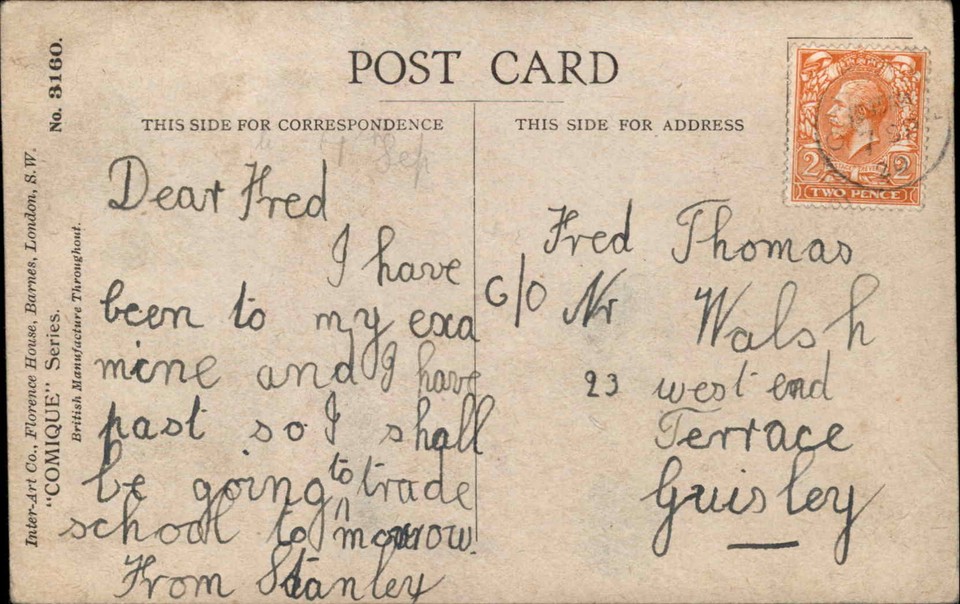 POST CARD
THIS SIDE FOR CORRESPONDENCE
THIS SIDE FOR ADDRESS
Sep
Dear Fred
I have
been to my exa
mine and I have
past so I shall
be going to trade
school to morrow.
From Stanley
Fred Thomas
C/O Mr Walsh
23 west end
Terrace
Guisley
2 2
TWO PENCE
22
No. 3160.
Inter-Art Co., Florence House, Barnes, London, S.W.
"COMIQUE" Series.
British Manufacture Throughout.